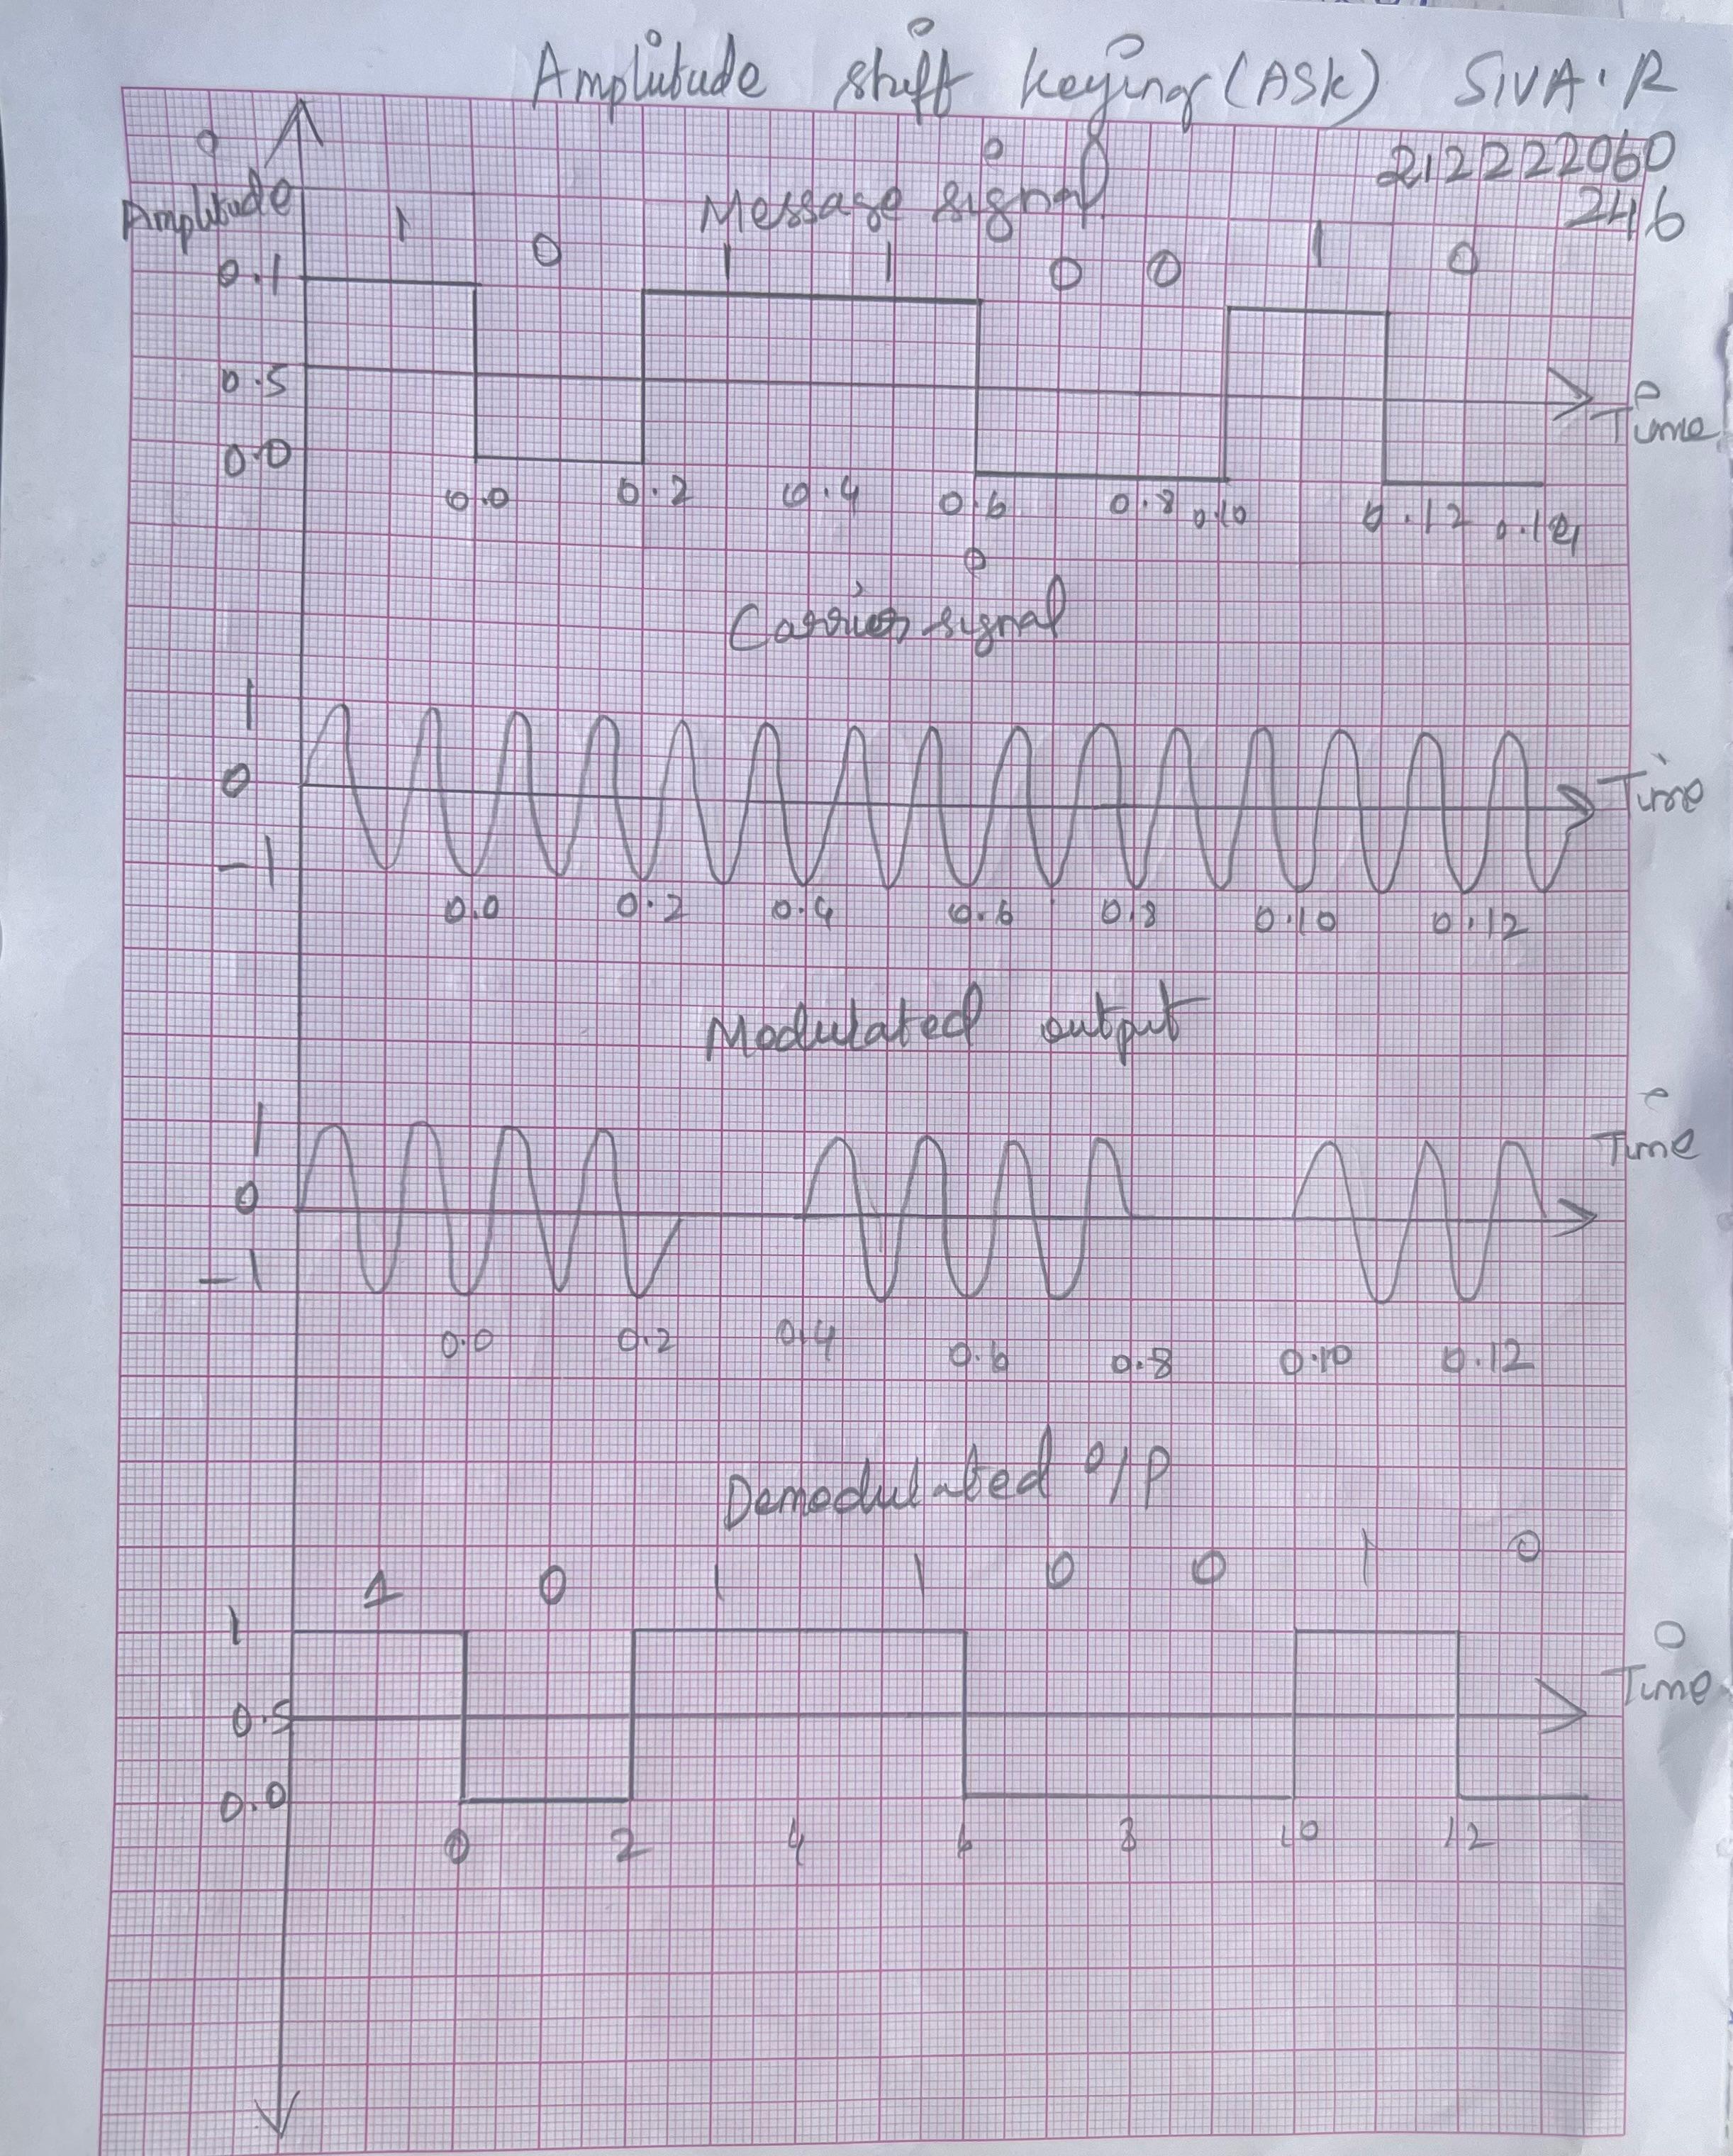 Amplitude shift keying (ASK) SIVA.R
212222060
246
Amplitude
Message signal
1 0 1 1 0 0 1 0
0.1
0.5
Time
0.0
0.0 0.2 0.4 0.6 0.8 0.10 0.12 0.14
Carrier signal
1
0
Time
-1
0.0 0.2 0.4 0.6 0.8 0.10 0.12
Modulated output
1
Time
0
-1
0.0 0.2 0.4 0.6 0.8 0.10 0.12
Demodulated o/p
1 0 1 1 0 0 1 0
1
0.5
Time
0.0
0 2 4 6 8 10 12